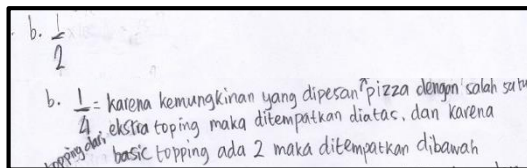 b. 1/2
b. 1/4 = karena kemungkinan yang dipesan pizza dengan salah satu
topping dari ekstra toping maka ditempatkan diatas, dan karena
basic topping ada 2 maka ditempatkan dibawah